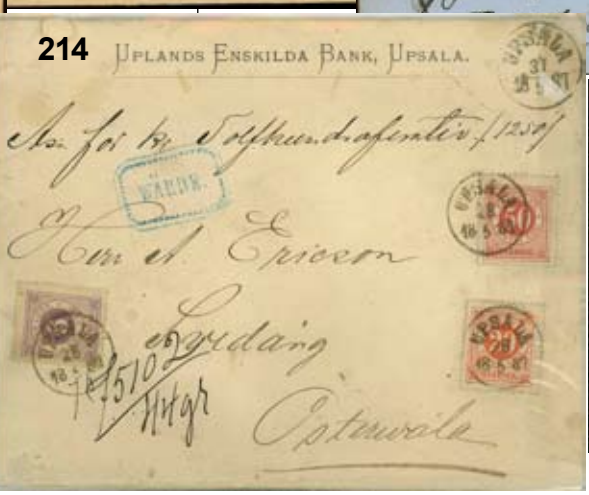 214
UPLANDS ENSKILDA BANK, UPSALA.
UPSALA
31
18 5 87
Ass. för kr Tolfhundrafemtio /1250/
WÄRDE.
UPSALA
28
18 5 87
50
Herr A. Ericson
UPSALA
28
18 5 87
UPSALA
28
18 5 87
5102
44gr
Österwåla